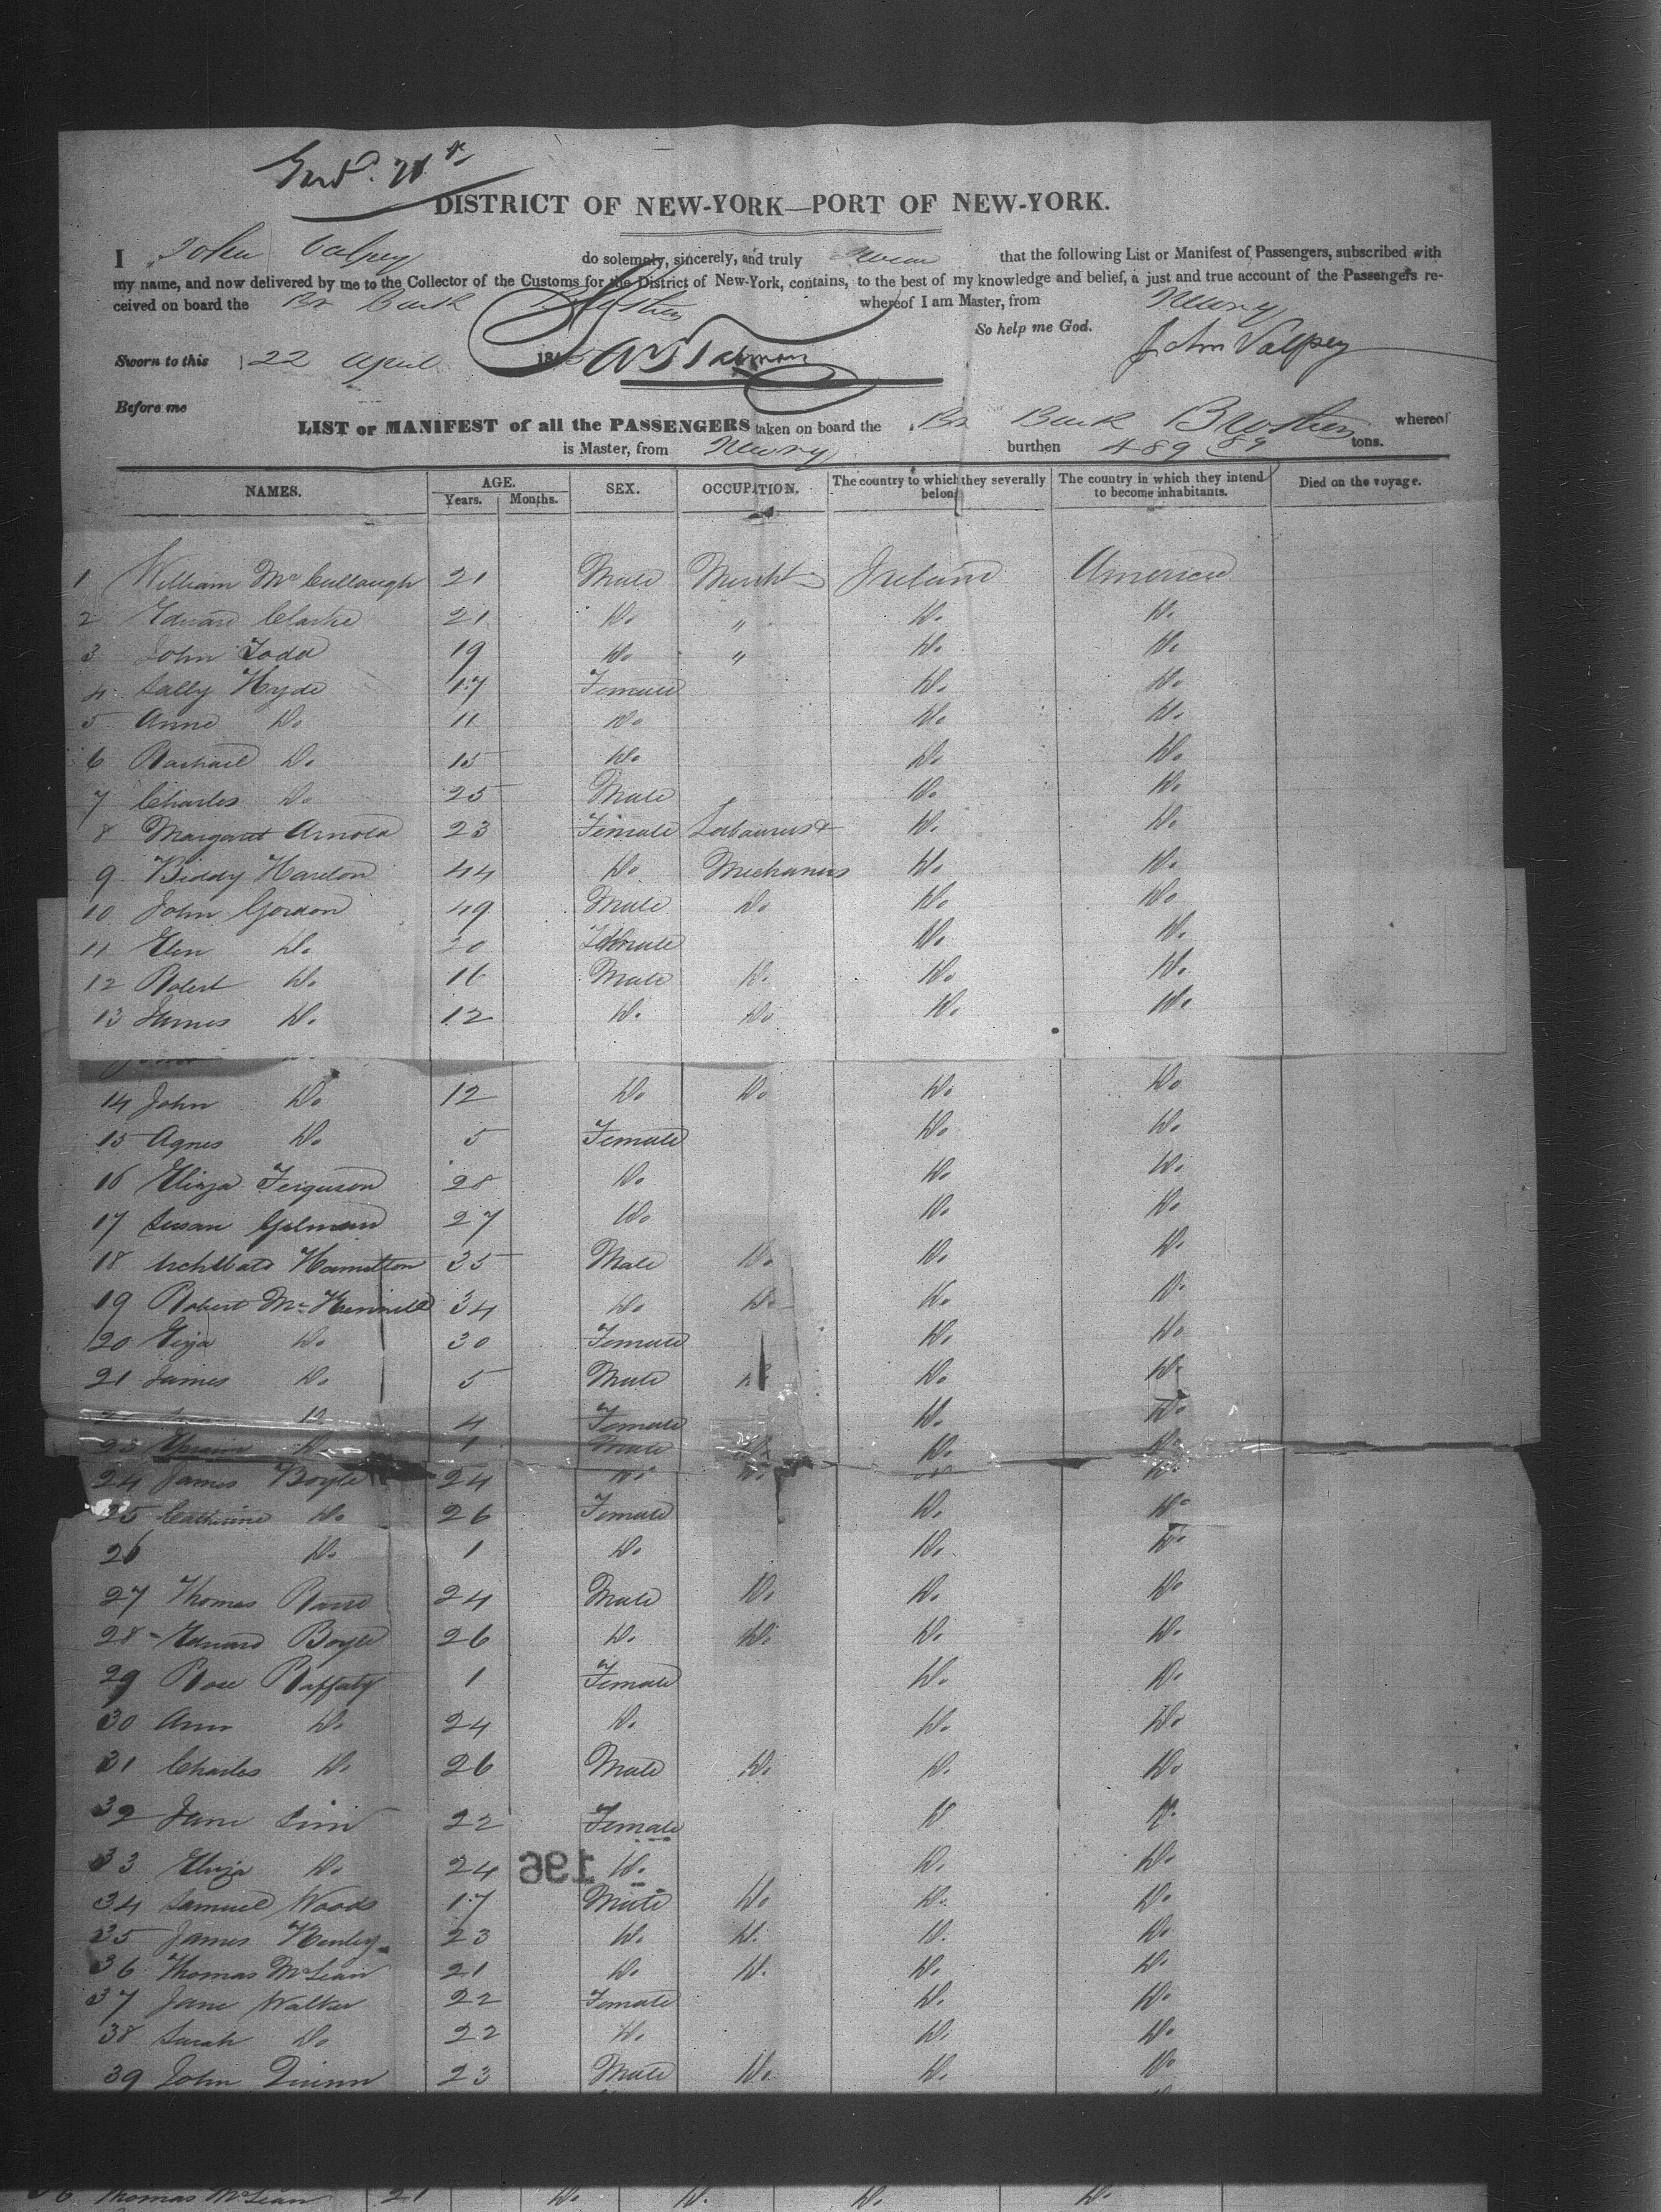 DISTRICT OF NEW-YORK—PORT OF NEW-YORK.
I John Valpey do solemnly, sincerely, and truly swear that the following List or Manifest of Passengers, subscribed with
my name, and now delivered by me to the Collector of the Customs for the District of New-York, contains, to the best of my knowledge and belief, a just and true account of the Passengers re-
ceived on board the Br Bark Brothers whereof I am Master, from Newry
So help me God.
Sworn to this 22 April 184 John Valpey
Before me
LIST or MANIFEST of all the PASSENGERS taken on board the Br Bark Brothers whereof
is Master, from Newry burthen 489 89 tons.
NAMES. AGE. Years. Months. SEX. OCCUPATION. The country to which they severally belong The country in which they intend to become inhabitants. Died on the voyage.
1 William McCullaugh 21 Male Mercht Ireland America
2 Edward Clarke 21 Do. " Do. Do.
3 John Todd 19 Do " Do. Do.
4 Sally Hyde 17 Female Do. Do.
5 Anne Do. 11 Do Do. Do.
6 Rachael Do. 15 Do. Do. Do.
7 Charles Do 25 Male Do. Do.
8 Margaret Arnold 23 Female Do. Do
9 Biddy 44 Do Mechanics Do. Do.
10 John Gordon 49 Male Do Do. Do
11 Elen Do. 30 Female Do. Do.
12 Robert Do. 16 Male Do. Do. Do.
13 James Do. 12 Do. Do Do. Do.
14 John Do 12 Do Do Do Do
15 Agnes Do. 5 Female Do Do.
16 Eliza Ferguson 28 Do. Do Do.
17 Susan 27 Do Do. Do.
18 Archibald Hamilton 35 Male Do. Do. Do.
19 Robert 34 Do Do. Do. Do.
20 Eliza Do. 30 Female Do. Do
21 James Do. 5 Male Do. Do.
Do 4 Female Do. Do
23 Do. 1 Male Do. Do. Do
24 James Boyle 24 Do Do. Do Do
25 Catherine Do 26 Female Do. Do
26 Do. 1 Do. Do. Do
27 Thomas 24 Male Do. Do. Do
28 Edward Boyle 26 Do. Do. Do. Do.
29 Rose Raffaty 1 Female Do. Do.
30 Ann Do. 24 Do. Do. Do
31 Charles Do 26 Male Do. Do. Do
32 Jane 22 Female Do Do.
33 Eliza Do. 24 Do. Do. Do.
196
34 Samuel Woods 17 Male Do Do. Do.
35 James Henley 23 Do. Do. Do. Do
36 Thomas McLean 21 Do. Do. Do. Do.
37 Jane Walker 22 Female Do. Do.
38 Sarah Do 22 Do. Do. Do
39 John Quinn 23 Male Do. Do. Do
6 Thomas McLean 21 Do. Do. Do. Do.